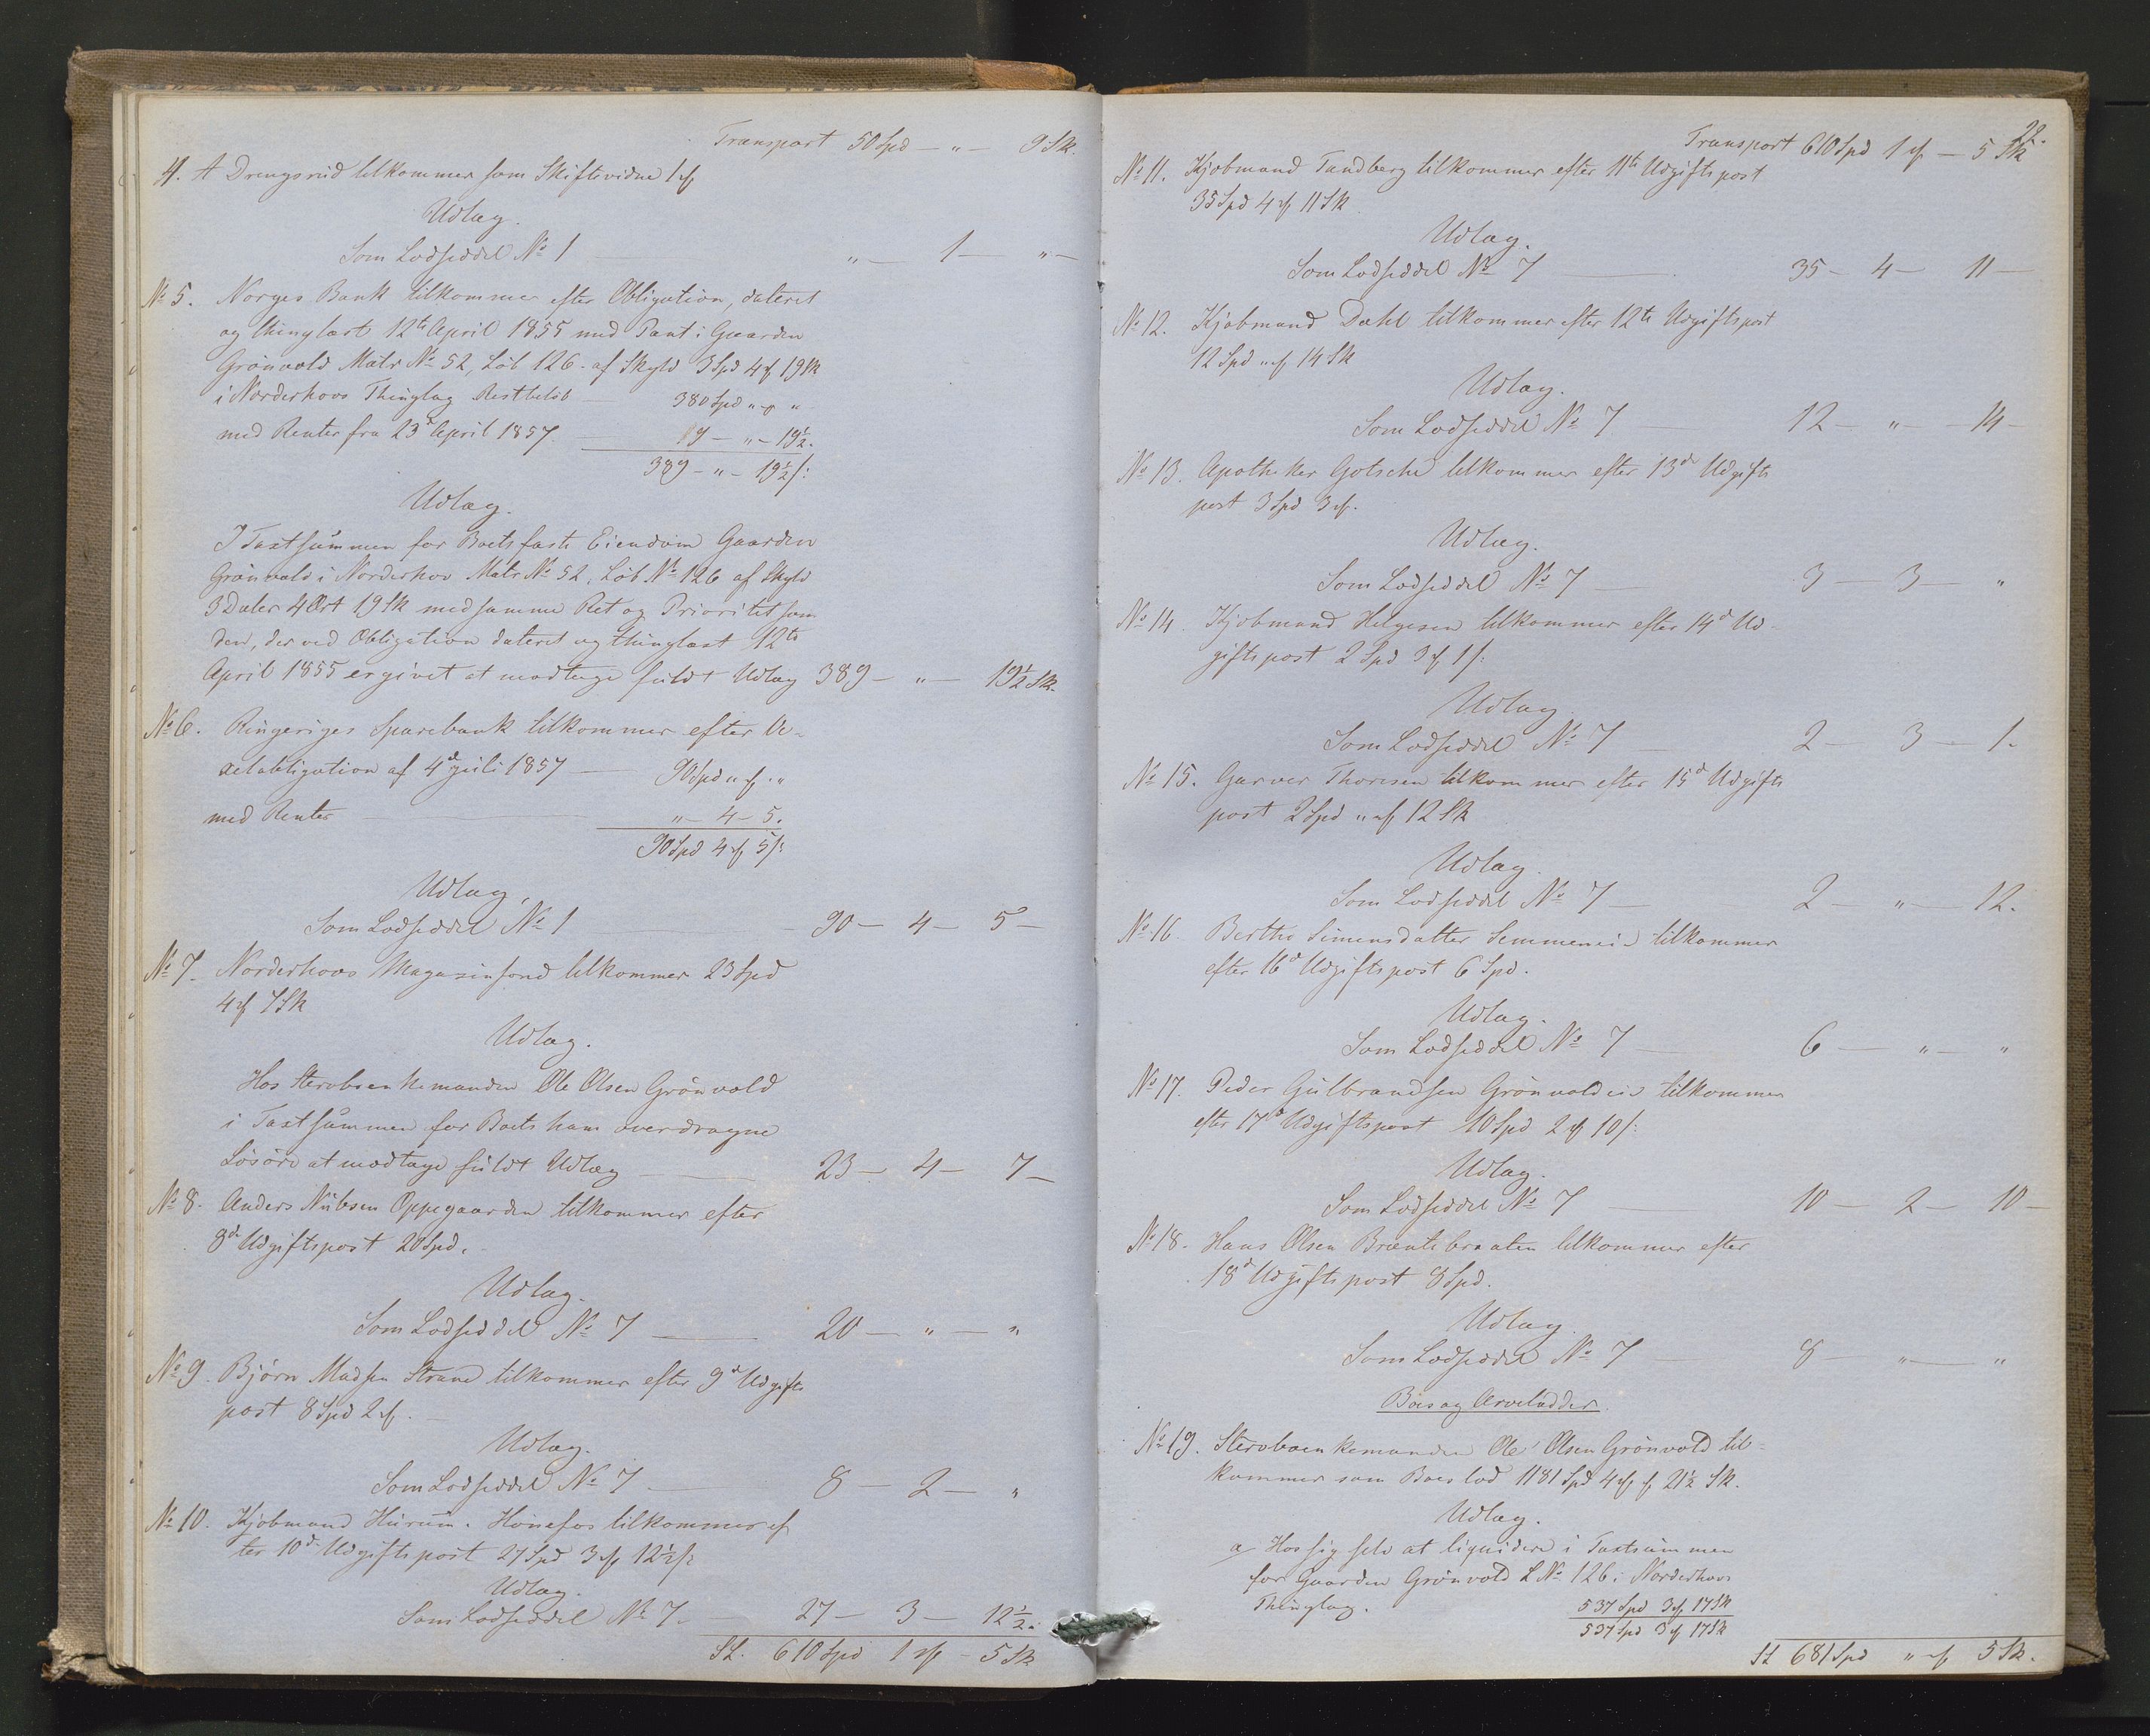 Transport 50 Spd — " — 9 Sk.
4. A Drengsrud tilkommer som Skiftevidne 1 ₰
Udlæg.
Som Lodseddel No 1 — " — 1 — " —
No 5. Norges Bank tilkommer efter Obligation, dateret
og thinglæst 12te April 1855 med Pant i Gaarden
Grönvold Matr No 52, Löb 126. af Skyld 3 Spd 4 ₰ 19 Sk
i Norderhovs Thinglag Restbelöb — 380 Spd " ₰ "
med Renter fra 23de April 1857. — 19 — " — 19½.
389 — " — 19½ s:
Udlæg.
I Taxtsummen for Boets faste Eiendom Gaarden
Grönvold i Norderhov Matr No 52, Löb No 126 af Skyld
3 Daler 4 Ort 19 Sk med samme Ret og Prioritet som
den, der ved Obligation dateret og thinglæst 12te
April 1855 er givet at modtage fuldt Udlæg 389 — " — 19½ Sk.
No 6. Ringeriges Sparebank tilkommer efter Ve-
xelobligation af 4de Juli 1857 — 90 Spd " ₰ "
med Renter — " — 4 — 5.
90 Spd 4 ₰ 5 s:
Udlæg.
Som Lodseddel No 1 — 90 — 4 — 5 —
No 7. Norderhovs Magasinfond tilkommer 23 Spd
4 ₰ 7 Sk
Udlæg.
Hos Stervboenkemanden Ole Olsen Grönvold
i Taxtsummen for Boets ham overdragne
Lösöre at modtage fuldt Udlæg — 23 — 4 — 7 —
No 8. Anders Nubsen Oppegaarden tilkommer efter
8de Udgiftspost 20 Spd.
Udlæg.
Som Lodseddel No 7 — 20 — " — "
No 9. Björn Madsen Strand tilkommer efter 9de Udgifts
post 8 Spd 2 ₰. —
Udlæg.
Som Lodseddel No 7 — 8 — 2 — "
No 10. Kjöbmand Hurum. Hönefos tilkommer ef
ter 10de Udgiftspost 27 Spd 3 ₰ 12½ s:
Udlæg.
Som Lodseddel No 7. — 27 — 3 — 12½.
Lt. 610 Spd 1 ₰ — 5 Sk
22.
Transport 610 Spd 1 ₰ — 5 Sk
No 11. Kjöbmand Tandberg tilkommer efter 11te Udgiftspost
35 Spd 4 ₰ 11 Sk
Udlæg.
Som Lodseddel No 7 — 35 — 4 — 11 —
No 12. Kjöbmand Dahl tilkommer efter 12te Udgiftspost
12 Spd " ₰ 14 Sk
Udlæg.
Som Lodseddel No 7 — 12 — " — 14 —
No 13. Apotheker Götsche tilkommer efter 13de Udgifts
post 3 Spd 3 ₰.
Udlæg.
Som Lodseddel No 7 — 3 — 3 — "
No 14. Kjöbmand Helgesen tilkommer efter 14de Ud-
giftspost 2 Spd 3 ₰ 1 s:
Udlæg.
Som Lodseddel No 7 — 2 — 3 — 1.
No 15. Garver Thoresen tilkommer efter 15de Udgifts
post 2 Spd " ₰ 12 Sk
Udlæg.
Som Lodseddel No 7 — 2 — " — 12.
No 16. Berthe Simensdatter Semmenei tilkommer
efter 16de Udgiftspost 6 Spd.
Udlæg.
Som Lodseddel No 7 — 6 — " — "
No 17. Peder Gulbrandsen Grönvoldei tilkommer
efter 17de Udgiftspost 10 Spd 2 ₰ 10 s:
Udlæg.
Som Lodseddel No 7 — 10 — 2 — 10 —
No 18. Hans Olsen Brentebraaten tilkommer efter
18de Udgiftspost 8 Spd.
Udlæg.
Som Lodseddel No 7 — 8 — " — "
Boes og Arvelodder.
No 19. Stervboenkemanden Ole Olsen Grönvold til-
kommer som Boeslod 1181 Spd 4 ₰ 21½ Sk.
Udlæg.
a Hos sig selv at liquidere i Taxtsummen
for Gaarden Grönvold L No 126 i Norderhovs
Thinglag. 537 Spd 3 ₰ 17 Sk
537 Spd 3 ₰ 17 Sk
Lt 681 Spd " ₰ 5 Sk.